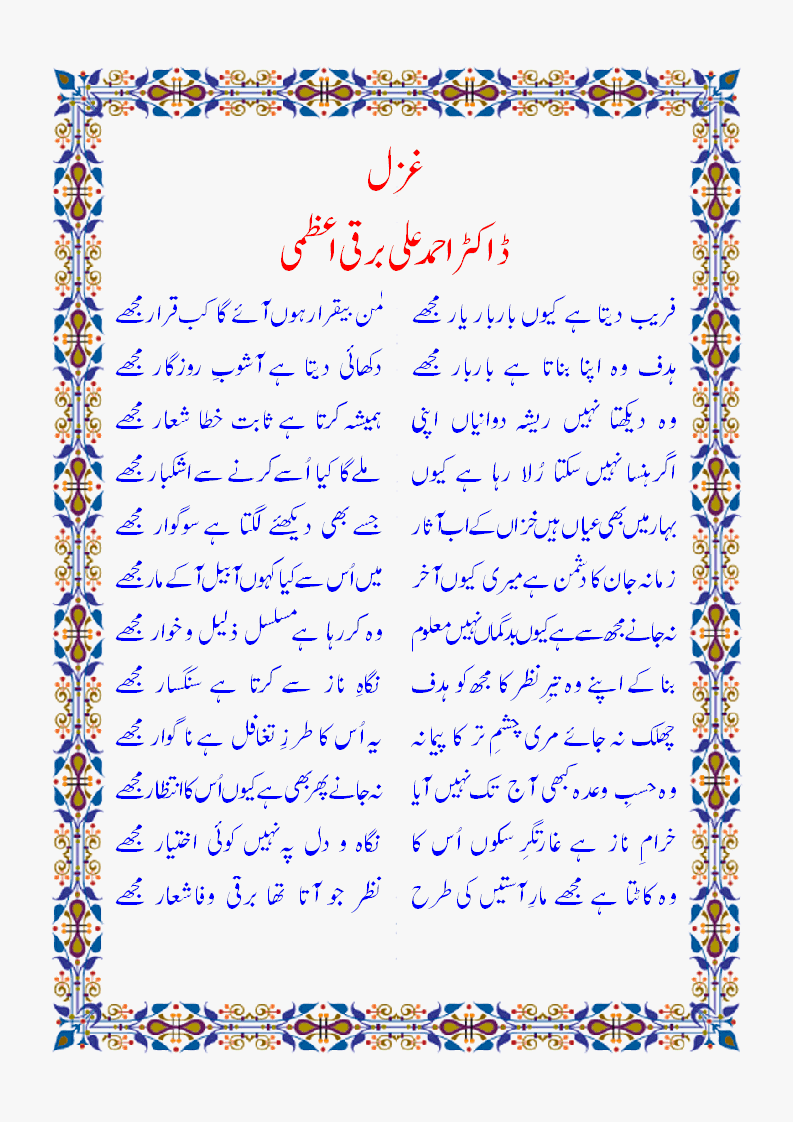 غزل
ڈاکٹر احمد علی برقی اعظمی
فریب دیتا ہے کیوں باربار یار مجھے لمن بیقرارہوں آئے گا کب قرار مجھے
ہدف وہ اپنا بناتا ہے باربار مجھے دکھائی دیتا ہے آشوبِ روزگار مجھے
وہ دیکھتا نہیں ریشہ دوانیاں اپنی ہمیشہ کرتا ہے ثابت خطا شعار مجھے
اگر ہنسا نہیں سکتا رُلا رہا ہے کیوں ملے گا کیا اُسے کرنے سے اشکبار مجھے
بہار میں بھی عیاں ہیں خزاں کے اب آثار جسے بھی دیکھئے لگتا ہے سوگوار مجھے
زمانہ جان کا دشمن ہے میری کیوں آخر میں اُس سے کیا کہوں آ بیل آ کے مار مجھے
نہ جانے مجھ سے ہے کیوں بدگماں نہیں معلوم وہ کررہا ہے مسلسل ذلیل و خوار مجھے
بنا کے اپنے وہ تیرِ نظر کا مجھ کو ہدف نگاہِ ناز سے کرتا ہے سنگسار مجھے
چھلک نہ جائے مری چشمِ تر کا پیمانہ یہ اُس کا طرزِ تغافل ہے ناگوار مجھے
وہ حسبِ وعدہ کبھی آج تک نہیں آیا نہ جانے پھر بھی ہے کیوں اُس کا انتظار مجھے
خرامِ ناز ہے غارتگرِ سکوں اُس کا نگاہ و دل پہ نہیں کوئی اختیار مجھے
وہ کاٹتا ہے مجھے مارِ آستیں کی طرح نظر جو آتا تھا برقی وفا شعار مجھے